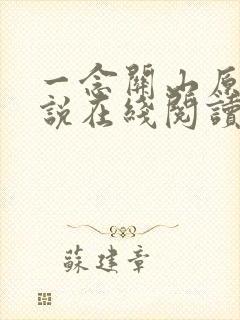 一念關山原
說在綫閱讀
蘇建章